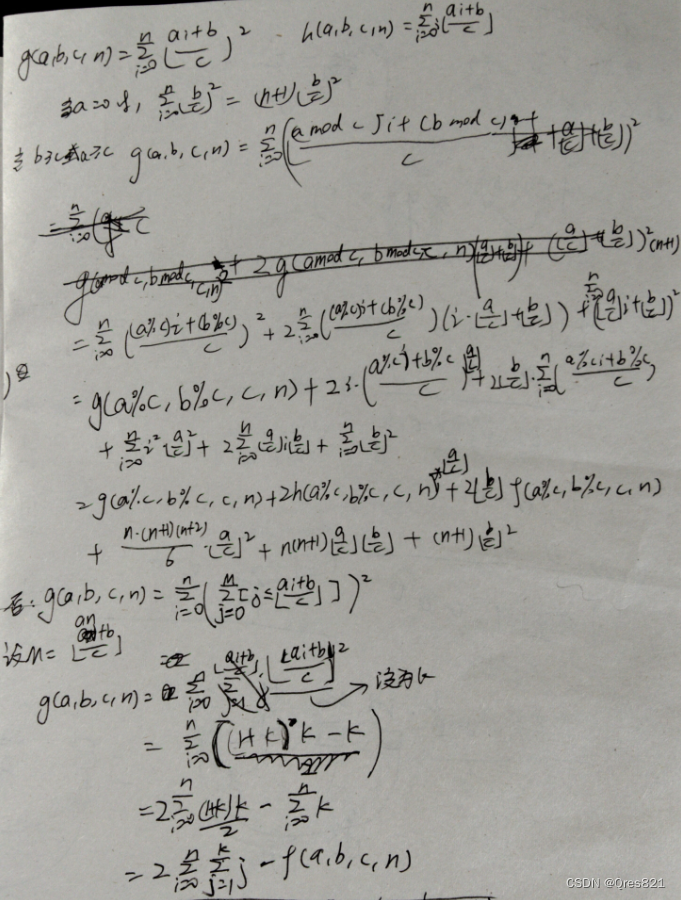 g(a,b,c,n) = \sum_{i=0}^{n} ⌊\frac{ai+b}{c}⌋^2 · h(a,b,c,n) = \sum_{i=0}^{n} i⌊\frac{ai+b}{c}⌋
当a=0时, \sum_{i=0}^{n} ⌊\frac{b}{c}⌋^2 = (n+1)⌊\frac{b}{c}⌋^2
当 b≥c或a≥c g(a,b,c,n) = \sum_{i=0}^{n} (\frac{(a mod c)i + (b mod c)}{c} + ⌊\frac{a}{c}⌋i + ⌊\frac{b}{c}⌋)^2
= \sum_{i=0}^{n} (\frac{(a%c)i+(b%c)}{c})^2 + 2\sum_{i=0}^{n} (\frac{(a%c)i+(b%c)}{c})(i·⌊\frac{a}{c}⌋+⌊\frac{b}{c}⌋) + \sum_{i=0}^{n}(⌊\frac{a}{c}⌋i+⌊\frac{b}{c}⌋)^2
= g(a%c, b%c, c, n) + 2i·(\frac{a%ci+b%c}{c})⌊\frac{a}{c}⌋ + 2⌊\frac{b}{c}⌋·\sum_{i=0}^{n}(\frac{a%ci+b%c}{c})
+ \sum_{i=0}^{n} i^2⌊\frac{a}{c}⌋^2 + 2\sum_{i=0}^{n}⌊\frac{a}{c}⌋i⌊\frac{b}{c}⌋ + \sum_{i=0}^{n}⌊\frac{b}{c}⌋^2
= g(a%c, b%c, c, n) + 2h(a%c, b%c, c, n)*⌊\frac{a}{c}⌋ + 2⌊\frac{b}{c}⌋ f(a%c, b%c, c, n)
+ \frac{n·(n+1)(n+2)}{6}·⌊\frac{a}{c}⌋^2 + n(n+1)⌊\frac{a}{c}⌋⌊\frac{b}{c}⌋ + (n+1)⌊\frac{b}{c}⌋^2
否: g(a,b,c,n) = \sum_{i=0}^{n}(\sum_{j=0}^{M}[j≤⌊\frac{ai+b}{c}⌋])^2
设M = ⌊\frac{an+b}{c}⌋
g(a,b,c,n) = \sum_{i=0}^{n} ⌊\frac{ai+b}{c}⌋^2 → 设为k
= \sum_{i=0}^{n}((1+k)k - k)
= 2\sum_{i=0}^{n}\frac{(1+k)k}{2} - \sum_{i=0}^{n}k
= 2\sum_{i=0}^{n}\sum_{j=1}^{k}j - f(a,b,c,n)
CSDN @Qres821